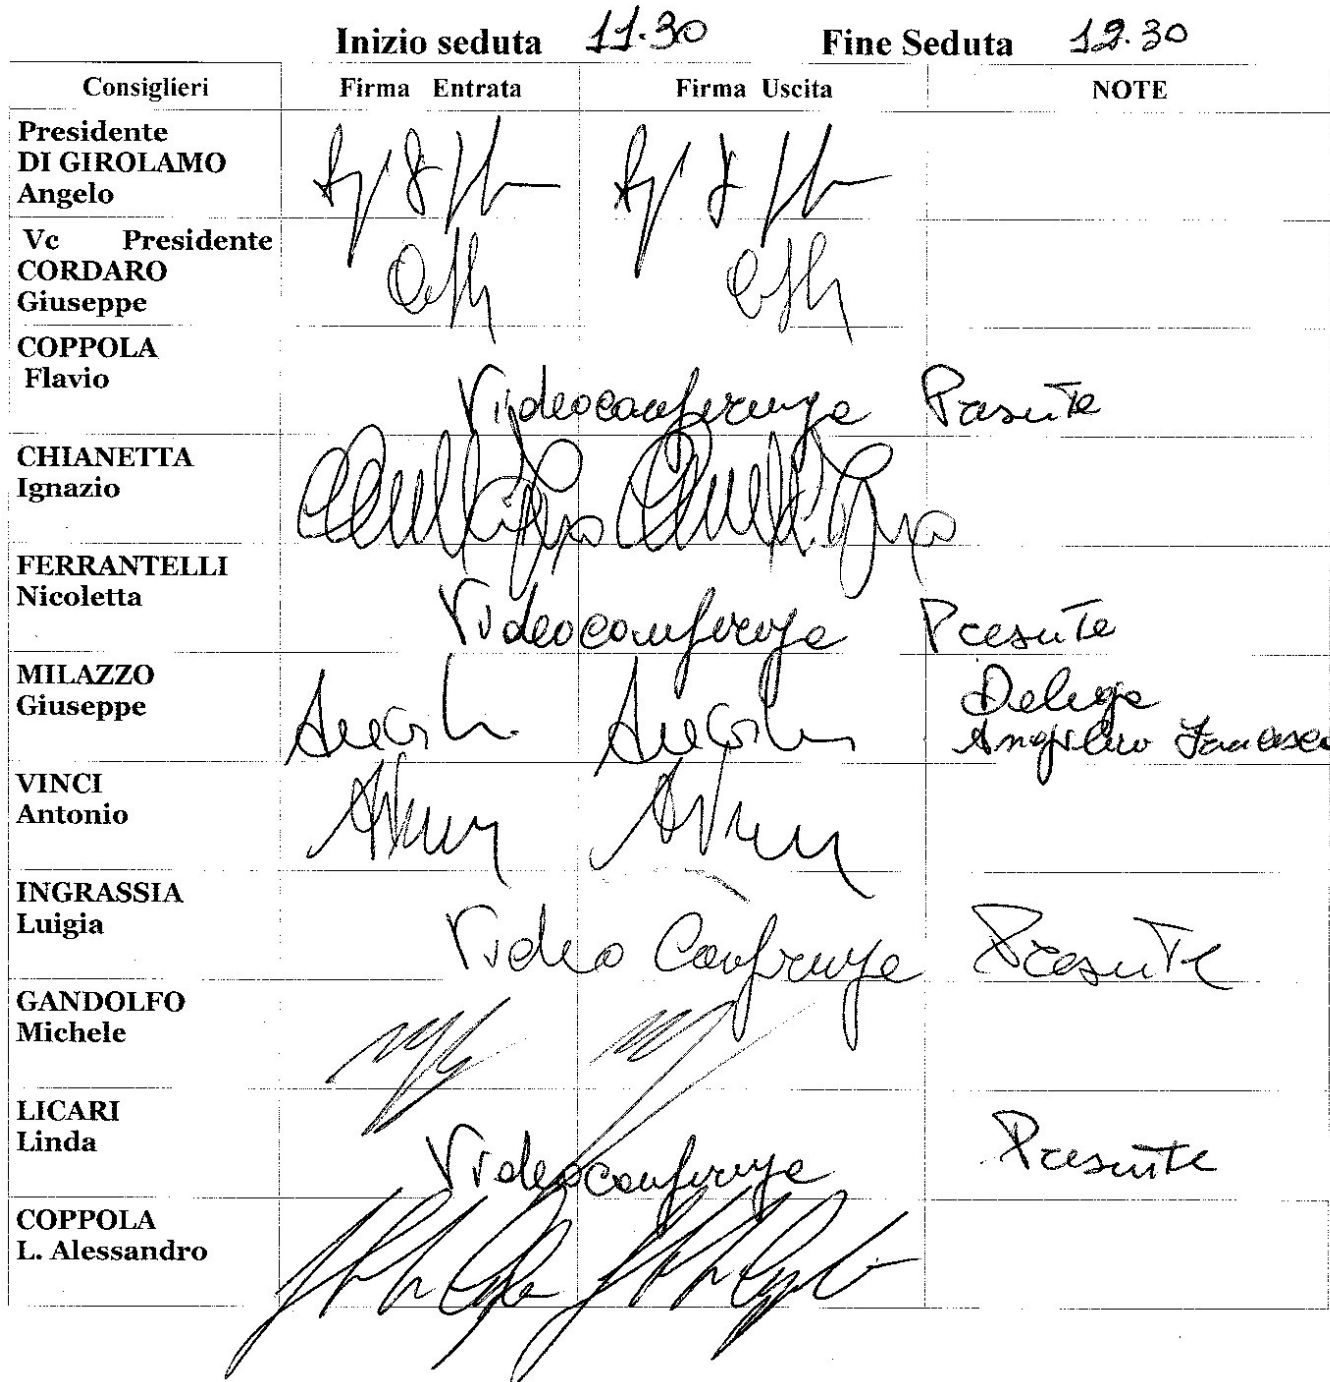 Inizio seduta 11.30 Fine Seduta 12.30
Consiglieri Firma Entrata Firma Uscita NOTE
Presidente
DI GIROLAMO
Angelo
Vc Presidente
CORDARO
Giuseppe
COPPOLA
Flavio
Videoconferenza Presente
CHIANETTA
Ignazio
FERRANTELLI
Nicoletta
Videoconferenza Presente
MILAZZO
Giuseppe
Delega
VINCI
Antonio
INGRASSIA
Luigia
Video Conferenza Presente
GANDOLFO
Michele
LICARI
Linda
Videoconferenza Presente
COPPOLA
L. Alessandro